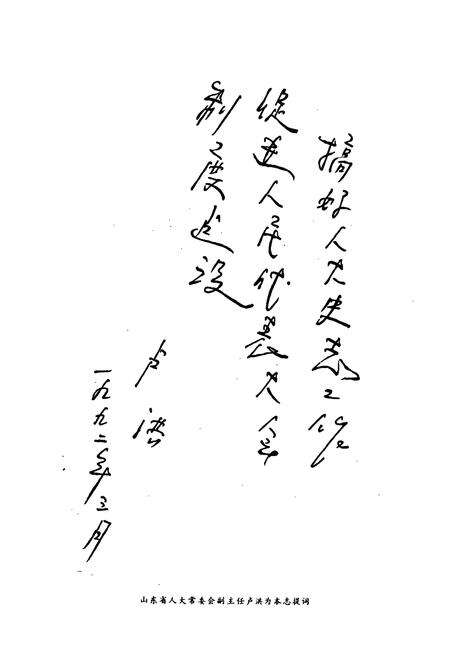 搞好人大史志工作
促进人民代表大会
制度建设
卢洪
一九九二年三月
山东省人大常委会副主任卢洪为本志提词